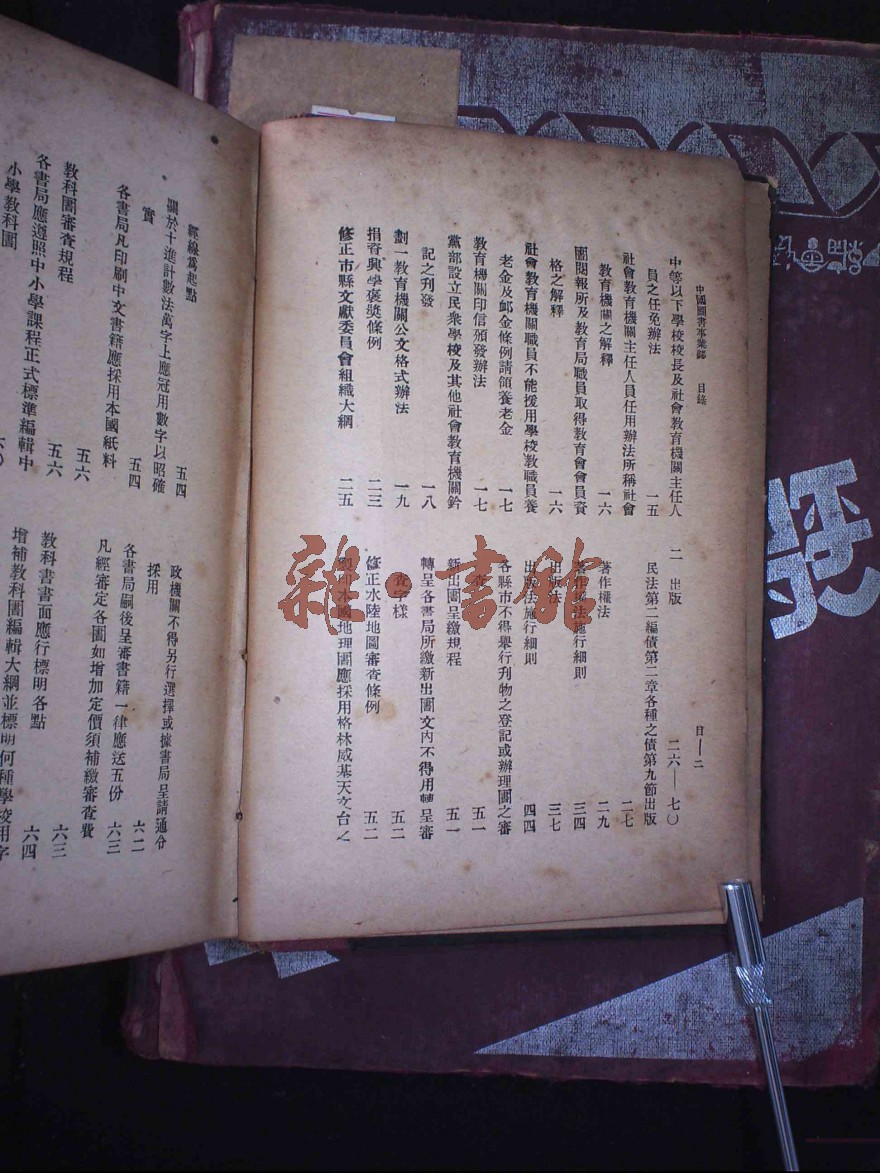 中國圖書事業誌 目錄
中等以下學校校長及社會教育機關主任人
員之任免辦法 一五
社會教育機關主任人員任用辦法所稱社會
教育機關之解釋 一六
圕閱報所及教育局職員取得教育會會員資
格之解釋 一六
社會教育機關職員不能援用學校教職員養
老金及卹金條例請領養老金 一七
教育機關印信頒發辦法 一七
黨部設立民衆學校及其他社會教育機關鈐
記之刊發 一八
劃一教育機關公文格式辦法 一九
捐資興學褒獎條例 二三
修正市縣文獻委員會組織大綱 二五
目—二
二 出版 二六—七〇
民法第二編債第二章各種之債第九節出版
二七
著作權法 二九
著作權法施行細則 三四
出版法 三七
出版法施行細則 四四
各縣市不得舉行刊物之登記或辦理圕之審
查 五一
新出圕呈繳規程 五一
轉呈各書局所繳新出圕文內不得用轉呈審
查字樣 五二
修正水陸地圖審查條例 五二
製印本國地理圖應採用格林威基天文台之
經線爲起點
關於十進計數法萬字上應冠用數字以昭確 五四
實
各書局凡印刷中文書籍應採用本國紙料 五四
教科圕審查規程 五六
各書局應遵照中小學課程正式標準編輯中 五六
小學教科圕 六〇
政機關不得另行選擇或據書局呈請通令
採用 六二
各書局嗣後呈審書籍一律應送五份 六三
凡經審定各圕如增加定價須補繳審查費
教科書書面應行標明各點 六三
增補教科圕編輯大綱並標明何種學校用字 六四
雜·書館